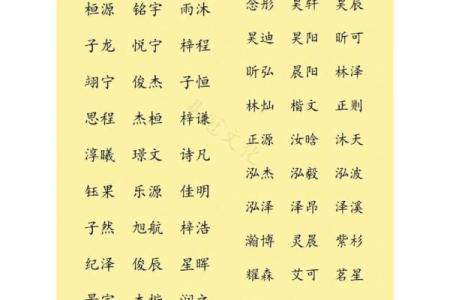 桓源 铭宇 雨沐
子龙 悦宁 梓程
翊宁 俊杰 子恒
思程 杰桓 梓谦
淳曦 璟文 诗凡
钰果 乐源 佳明
子然 旭航 梓浩
纪泽 俊辰 星晖
念彤 昊轩 昊辰
昊迪 昊阳 昕可
昕弘 晨阳 林泽
林灿 楷文 正则
正源 汝晗 沐天
泓杰 泓毅 泓波
泓泽 泽昂 泽溪
瀚博 灵晨 紫杉
耀森 艾可 茗星